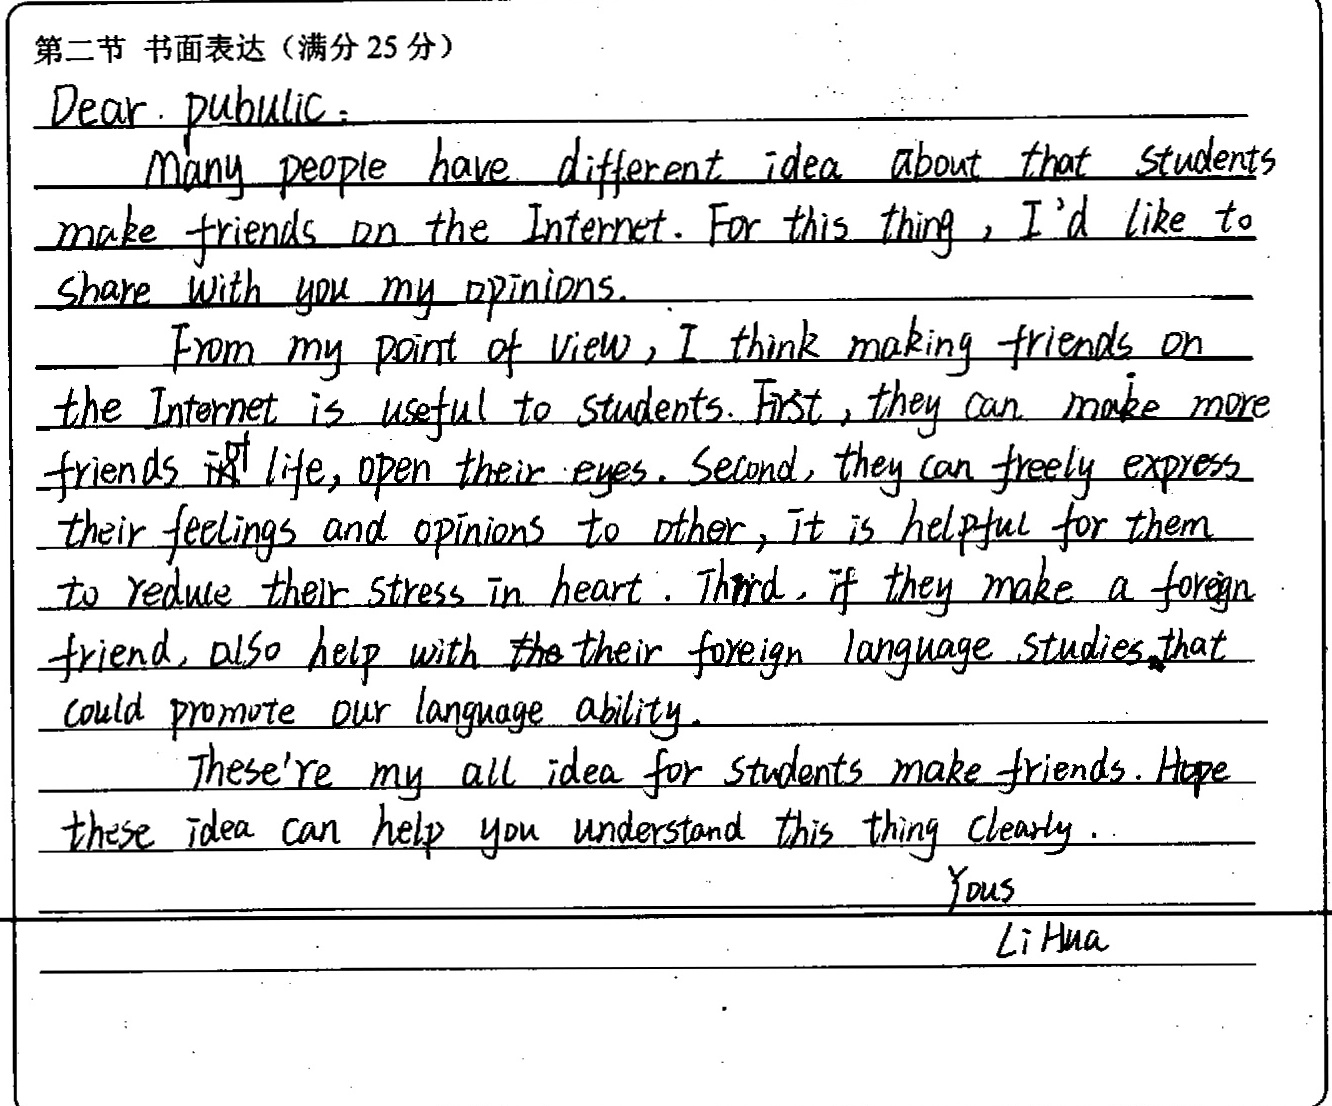 第二节 书面表达（满分 25 分）
Dear. pubulic:
Many people have different idea about that students
make friends on the Internet. For this thing, I'd like to
share with you my opinions.
From my point of view, I think making friends on
the Internet is useful to students. First, they can make more
friends of life, open their eyes. Second, they can freely express
their feelings and opinions to other, it is helpful for them
to reduce their stress in heart. Third, if they make a foreign
friend, also help with their foreign language studies. that
could promote our language ability.
These're my all idea for students make friends. Hope
these idea can help you understand this thing clearly.
Yous
Li Hua